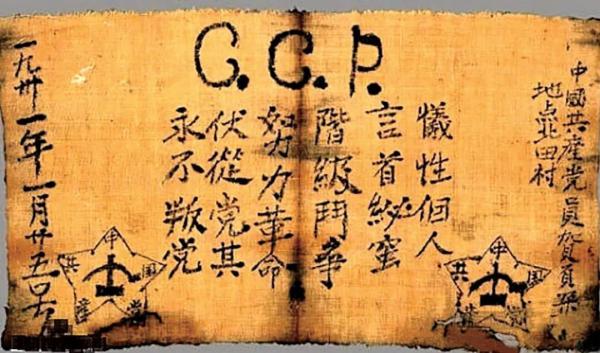 C.C.P.
中國共產党員賀頁朵
地点北田村
犧性個人
言首
階級鬥爭
努力革命
伏從党其
永不叛党
一九卅一年一月廿五号
中
共
国
產
党
中
共
国